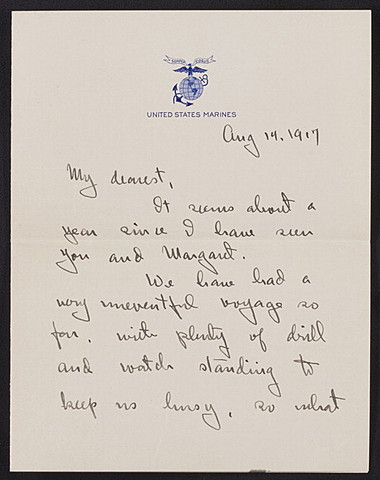 SEMPER FIDELIS
UNITED STATES MARINES
Aug 14, 1917
My dearest,
It seems about a
year since I have seen
you and Margaret.
We have had a
very uneventful voyage so
far, with plenty of drill
and watch standing to
keep us busy, so what